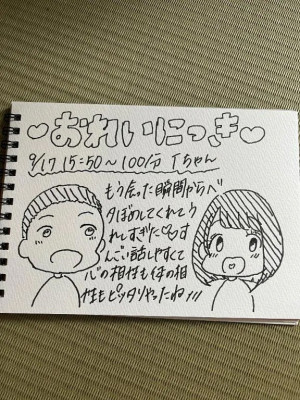 ♡おれいにっき♡
9/17 15:50〜100分 Tちゃん
もう会った瞬間からベ
タぼめしてくれてう
れしすぎた♡♡す
んごい話しやすくて
心の相性も体の相
性もピッタリやったね!!!